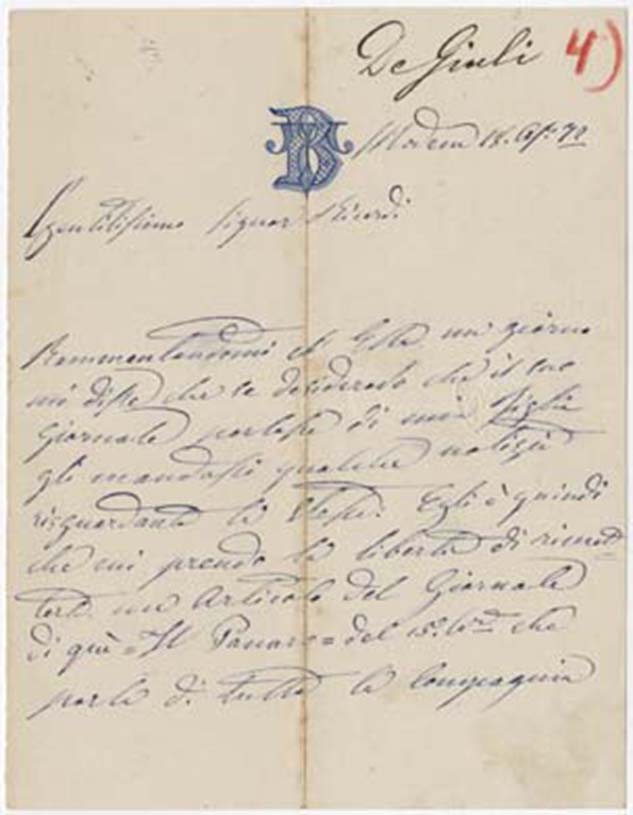 De Giuli 4)
Modena 18. Ap.e 72
Gentilissimo Signor Ricordi
Rammentandomi ch'Ella un giorno
mi disse che se desideravo che il suo
Giornale parlasse di mia figlia
gli mandassi qualche notizia
risguardante la stessa. Egli è quindi
che mi prendo la libertà di rimet
terle un articolo del Giornale
di quì = Il Panaro = del 15 che
parla di tutta la Compagnia